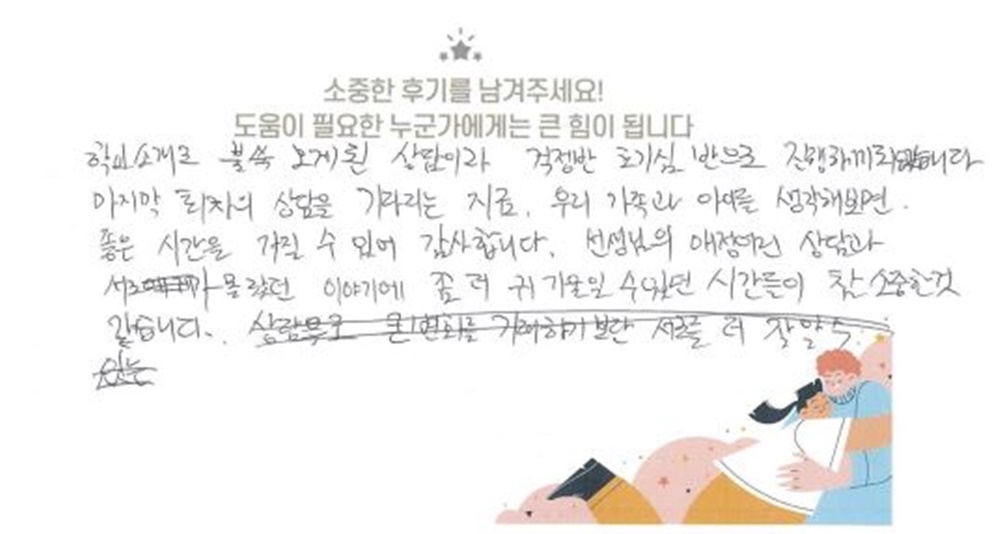 소중한 후기를 남겨주세요!
도움이 필요한 누군가에게는 큰 힘이 됩니다
학교소개로 불쑥 오게된 상담이라 걱정반 호기심 반으로 진행하게되었습니다
마지막 회차의 상담을 기다리는 지금, 우리 가족과 아이를 생각해보면.
좋은 시간을 가질 수 있어 감사합니다. 선생님의 애정어린 상담과
서로가 몰랐던 이야기에 좀 더 귀 기울일 수있던 시간들이 참 소중한것
같습니다. 상담목로 큰 변화를 기대하기 보단 서로를 더 잘 알 수.
있는